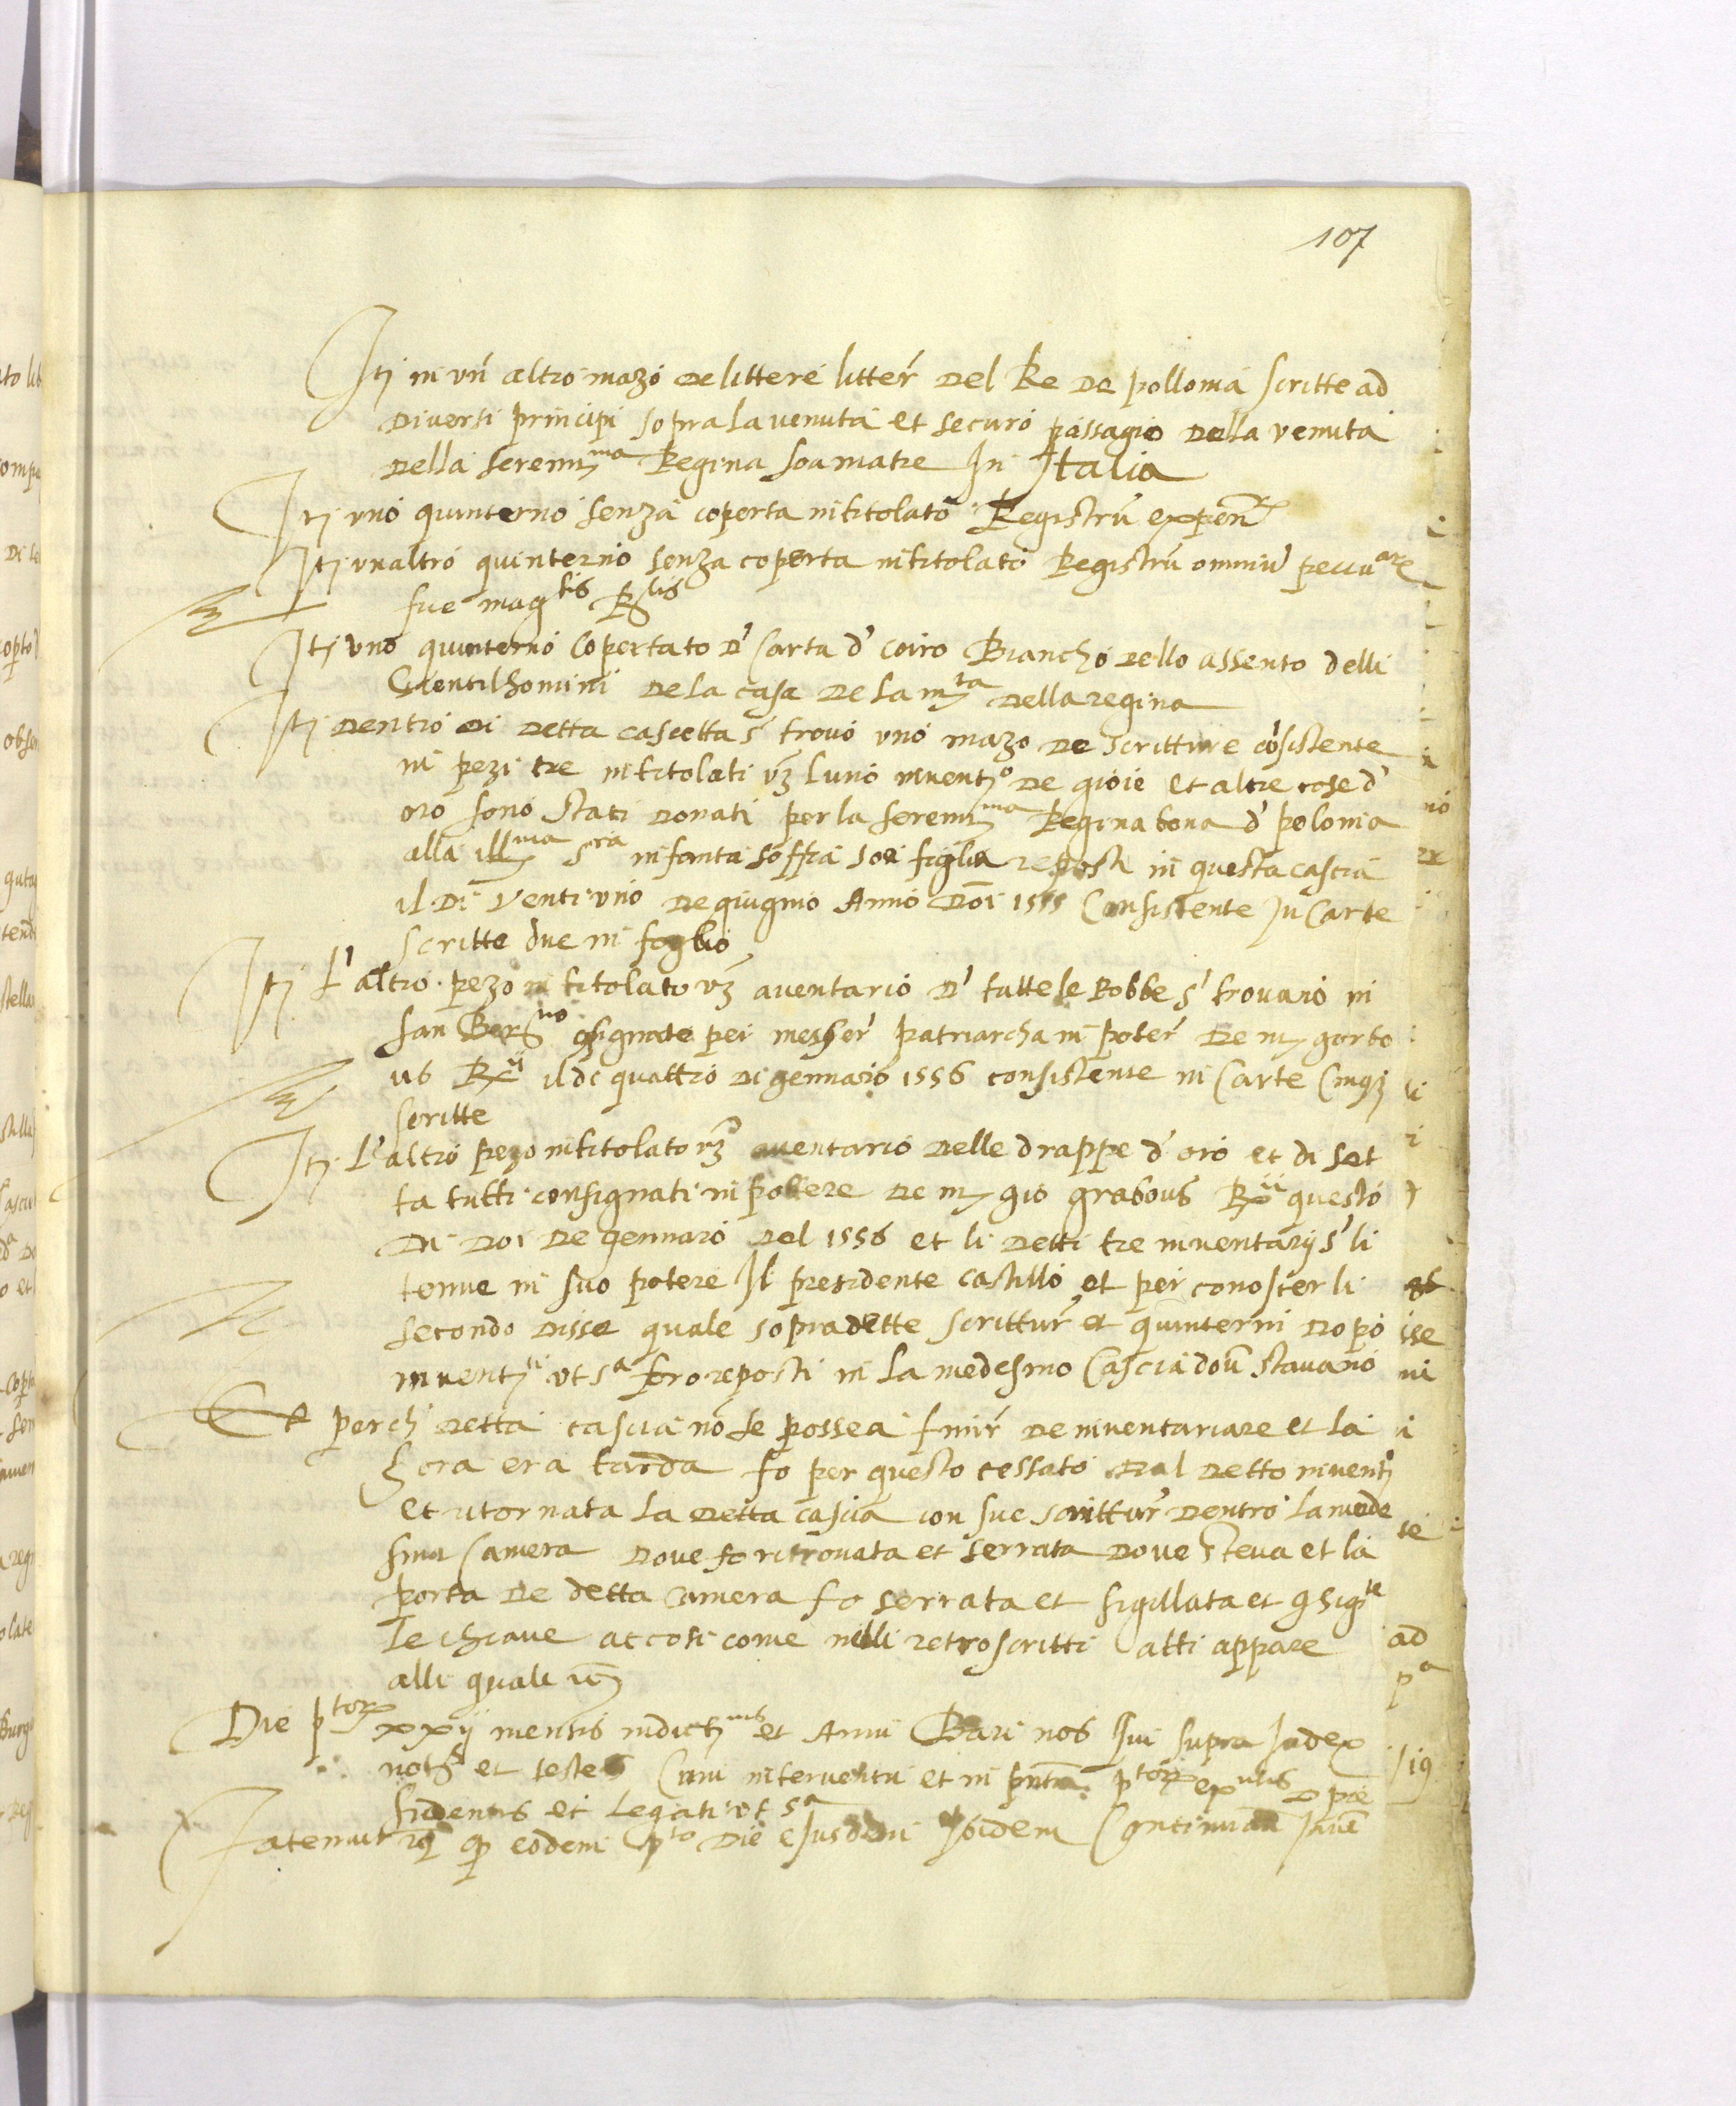 107
Itj in un altro mazo de littere litter' del Re de pollonia scritte ad
diversi principi sopra la venuta et securo passagio della venuta
della serenima Regina soa matre In Italia
Itj uno quinterno senza coperta intitolato Registrũ expen
Itj unaltro quinterno senza coperta intitolato Registrũ omniũ
sue magtis Rlis
Itj uno quinterno copertato d' carta d' coiro Biancho dello assento delli
Gientilhomini de la casa de la mta della regina
Itj dentro di detta cascetta s' trovo uno mazo de scritture cõsistente
in pezi tre intitolati vz luno inventjo de gioie et altre cose d'
oro sono stati donati per la serenima Regina bona d' polonia
alla illma sra infanta soffia soa figlia reposti in questa cascia
il di venti uno de giugnio Anno Doi 1555 Consistente In Carte
scritte due in foglio
Itj L'altro pezo intitolato vz aventario d' tutte le Robbe s' trovaro in
san Berno cõsignate per messer' patriarcha in poter' de mj garbo
us Rxii il di quattro di gennaro 1556 consistente in Carte Cinq;
scritte
Itj L'altro pezo intitolato vz aventario delle drappe d' oro et di set
ta tutti consignati in pottere de mj gio grabous Rxii questo
di doi de gennaro del 1556 et li detti tre inventarij s' li
tenne in suo potere Il presidente castillo et per conoscer li
secondo disse quale sopradette scrittur' et quinterni dopo
inventjti ut sa foro reposti in la medesmo Cascia doũ stavano
Et perch' detta cascia nõ se possea finir' de inventariare et la
hora era tarda fo per questo cessato dal detto inventj
et ritornata la detta cascia con sue scrittur' dentro la mede
sma Camera dove fo ritrovata et serrata dove steva et la
porta de detta camera fo serrata et sigillata et cõsigte
le chiave accosi come nelli retroscritti atti appare
alli quali
Die ptorx xxij mensis indictjnis et Anni Bari nos qui supra Iudex
not et testes Cum interventu et in pñtia ptorx
sidentis et Legati ut sa
Fatemur qp eodem pto Die eiusdem Ibidem Continuan